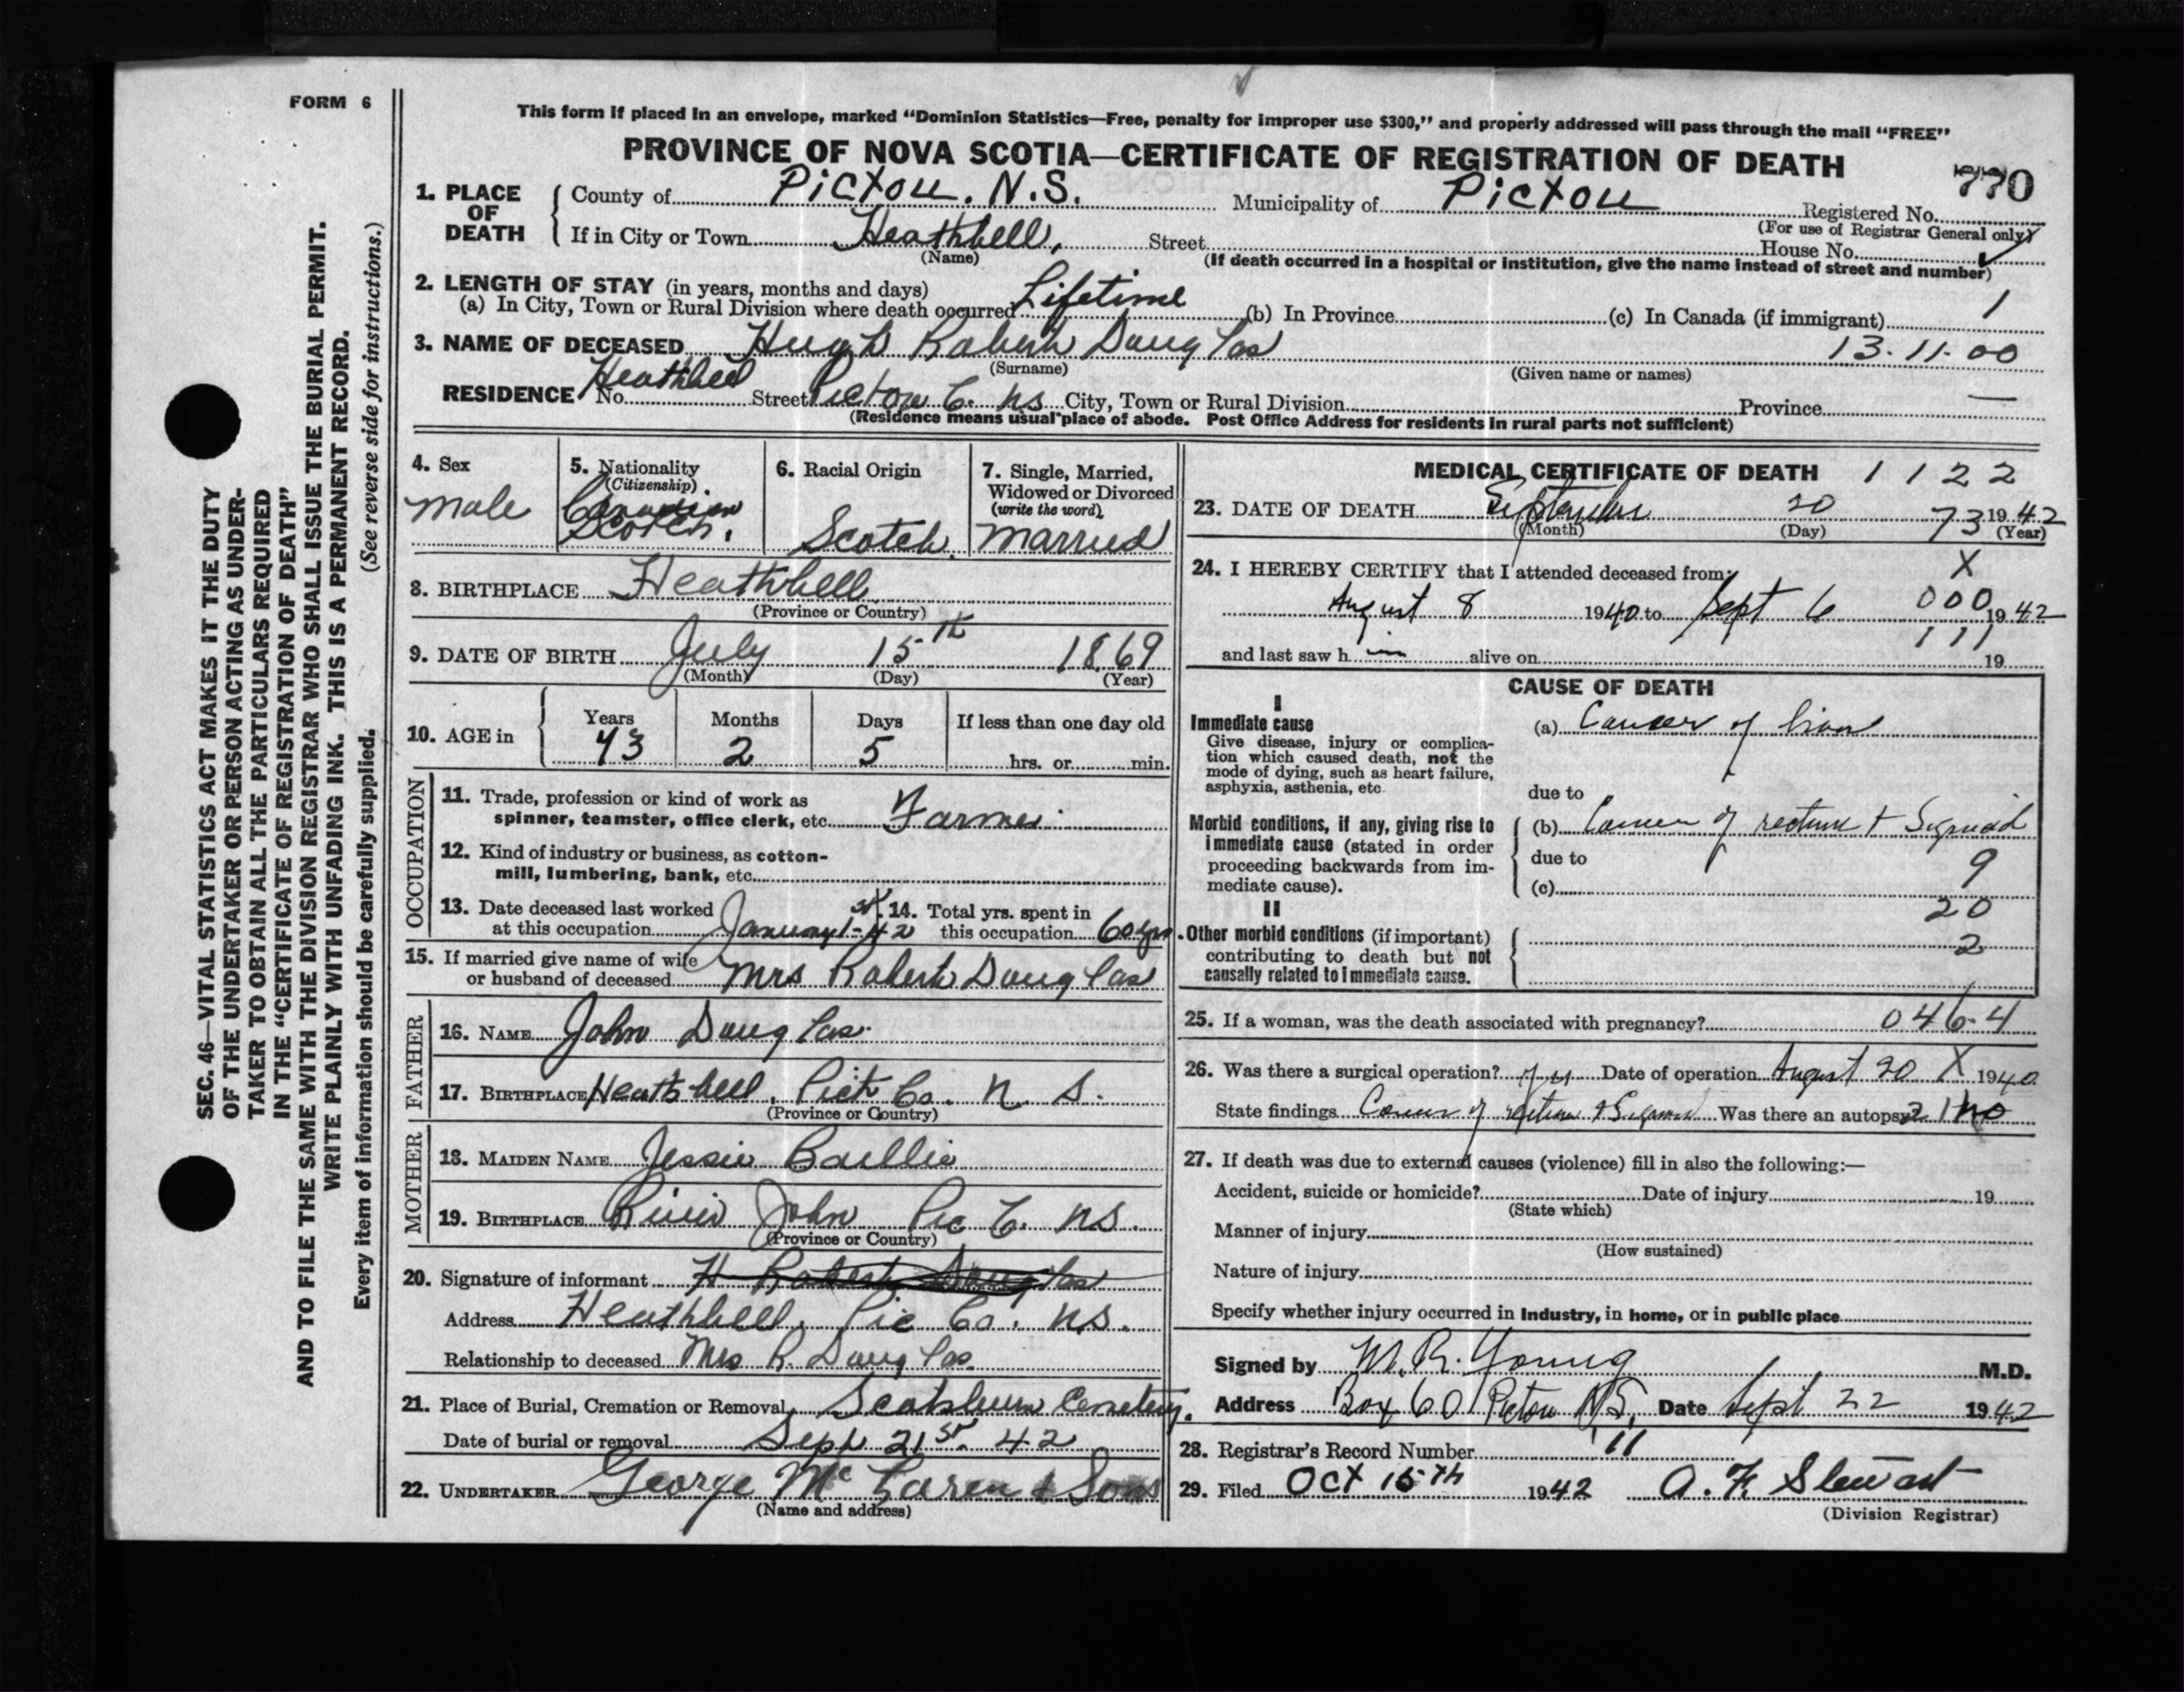 FORM 6
This form if placed in an envelope, marked "Dominion Statistics—Free, penalty for improper use $300," and properly addressed will pass through the mail "FREE"
PROVINCE OF NOVA SCOTIA—CERTIFICATE OF REGISTRATION OF DEATH
770
1. PLACE OF DEATH
County of Pictou. N.S. Municipality of Pictou Registered No.
(For use of Registrar General only)
If in City or Town Heathbell, Street House No.
(Name) (If death occurred in a hospital or institution, give the name instead of street and number)
2. LENGTH OF STAY (in years, months and days)
(a) In City, Town or Rural Division where death occurred Lifetime (b) In Province (c) In Canada (if immigrant) 1
3. NAME OF DECEASED Hugh Robert Douglas 13-11-00
(Surname) (Given name or names)
RESIDENCE No. Heathbell Street Pictou C. NS City, Town or Rural Division Province —
(Residence means usual place of abode. Post Office Address for residents in rural parts not sufficient)
4. Sex Male
5. Nationality (Citizenship) Canadian Scotch.
6. Racial Origin Scotch
7. Single, Married, Widowed or Divorced (write the word) Married
8. BIRTHPLACE Heathbell
(Province or Country)
9. DATE OF BIRTH July 15th 1869
(Month) (Day) (Year)
10. AGE in Years 73 Months 2 Days 5 If less than one day old hrs. or min.
OCCUPATION
11. Trade, profession or kind of work as spinner, teamster, office clerk, etc. Farmer
12. Kind of industry or business, as cotton-mill, lumbering, bank, etc.
13. Date deceased last worked at this occupation January 1st-42 14. Total yrs. spent in this occupation 60 yrs.
15. If married give name of wife or husband of deceased Mrs Robert Douglas
FATHER
16. NAME John Douglas
17. BIRTHPLACE Heathbell, Pict Co. N. S.
(Province or Country)
MOTHER
18. MAIDEN NAME Jessie Baillie
19. BIRTHPLACE River John Pic C. NS.
(Province or Country)
20. Signature of informant H Robert Douglas
Address Heathbell, Pic Co. NS.
Relationship to deceased Mrs R. Douglas
21. Place of Burial, Cremation or Removal Scotsburn Cemetery.
Date of burial or removal Sept 21st. 42
22. UNDERTAKER George McLaren & Sons
(Name and address)
MEDICAL CERTIFICATE OF DEATH 1122
23. DATE OF DEATH September 20 73 1942
(Month) (Day) (Year)
24. I HEREBY CERTIFY that I attended deceased from: X
August 8 1940 to Sept 6 000 1942
111
and last saw h im alive on 19
CAUSE OF DEATH
I
Immediate cause
Give disease, injury or complication which caused death, not the mode of dying, such as heart failure, asphyxia, asthenia, etc.
(a) Cancer of liver
due to
Morbid conditions, if any, giving rise to immediate cause (stated in order proceeding backwards from immediate cause).
(b) Cancer of rectum + Sigmoid
due to 9
(c)
20
II
Other morbid conditions (if important) contributing to death but not causally related to immediate cause.
2
25. If a woman, was the death associated with pregnancy? 046-4
26. Was there a surgical operation? yes Date of operation August 20 X 1940
State findings Cancer of rectum & Sigmoid Was there an autopsy? 21 no
27. If death was due to external causes (violence) fill in also the following:—
Accident, suicide or homicide? Date of injury 19
(State which)
Manner of injury
(How sustained)
Nature of injury
Specify whether injury occurred in Industry, in home, or in public place
Signed by M.R. Young M.D.
Address Box 60 Pictou N.S. Date Sept 22 1942
28. Registrar's Record Number 11
29. Filed Oct 15th 1942 A. F. Stewart
(Division Registrar)
SEC. 46—VITAL STATISTICS ACT MAKES IT THE DUTY
OF THE UNDERTAKER OR PERSON ACTING AS UNDER-
TAKER TO OBTAIN ALL THE PARTICULARS REQUIRED
IN THE "CERTIFICATE OF REGISTRATION OF DEATH"
AND TO FILE THE SAME WITH THE DIVISION REGISTRAR WHO SHALL ISSUE THE BURIAL PERMIT.
WRITE PLAINLY WITH UNFADING INK. THIS IS A PERMANENT RECORD.
Every item of information should be carefully supplied. (See reverse side for instructions.)